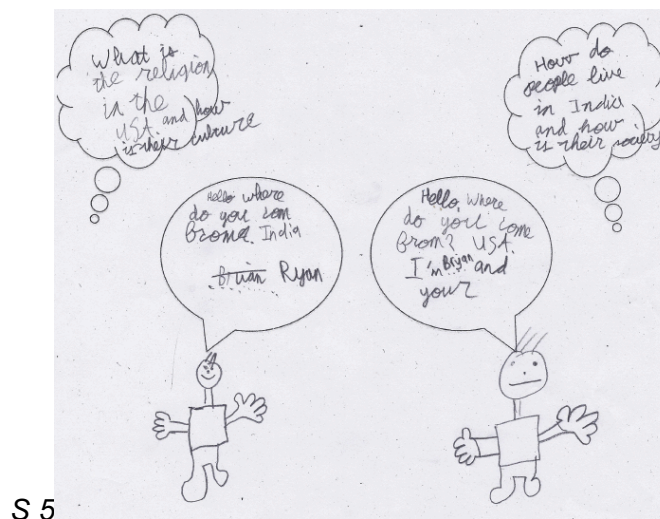 What is
the religion
in the
USA and how
is their culture
How do
people live
in India
and how
is their society
Hello where
do you com
from? India
Brian Ryan
Hello, Where
do you come
from? USA.
I'm Bryan and
your
S 5